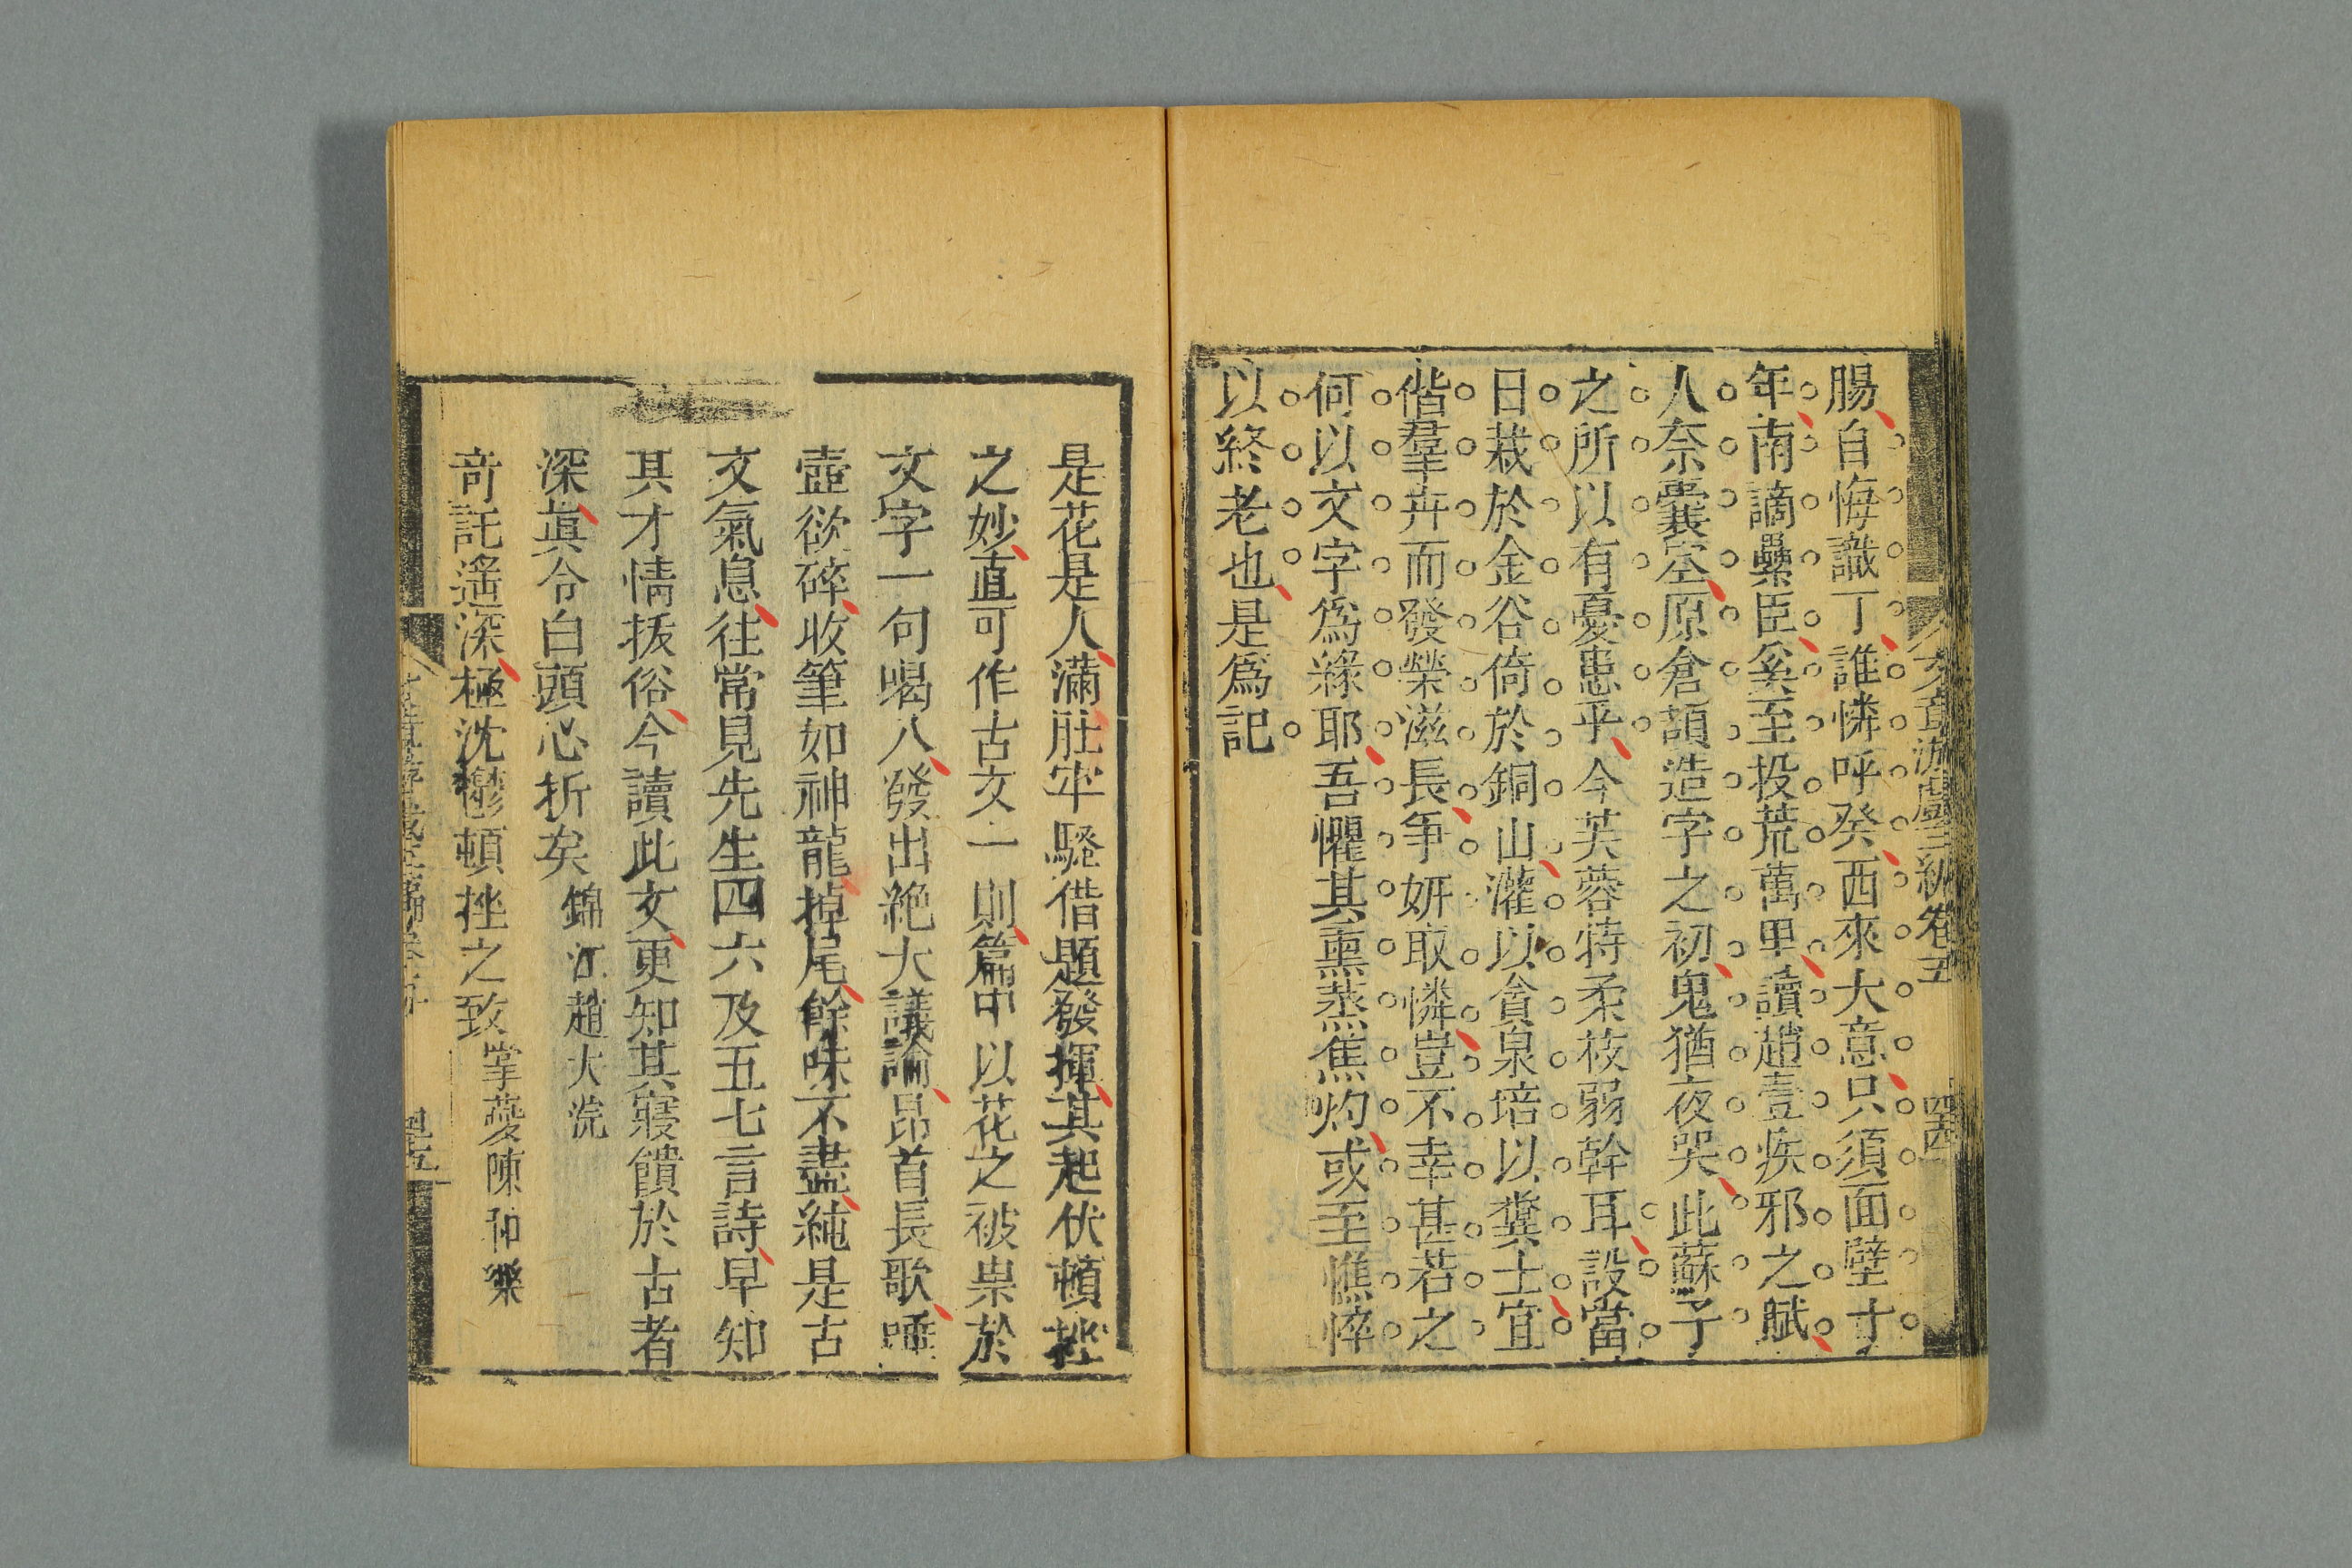 文章游戲三編卷五
四四
腸自悔識丁誰憐呼癸西來大意只須面壁十
年南謫纍臣奚至投荒萬里讀趙壹疾邪之賦
人奈囊空原倉頡造字之初鬼猶夜哭此蘇子
之所以有憂患乎今芙蓉特柔枝弱幹耳設當
日栽於金谷倚於銅山灌以貪泉培以糞土宜
偕羣卉而發榮滋長爭妍取憐豈不幸甚若之
何以文字為緣耶吾懼其熏蒸焦灼或至憔悴
以終老也是爲記
是花是人滿肚牢騷借題發揮其起伏頓挫
之妙直可作古文一則篇中以花之被祟於
文字一句喝入發出絶大議論昂首長歌唾
壺欲碎收筆如神龍掉尾餘味不盡純是古
文氣息往常見先生四六及五七言詩早知
其才情拔俗今讀此文更知其寢饋於古者
深眞令白頭心折矣 錦江趙大浣
竒託遥深極沈鬱頓挫之致 掌蕘陳仰樂
四五